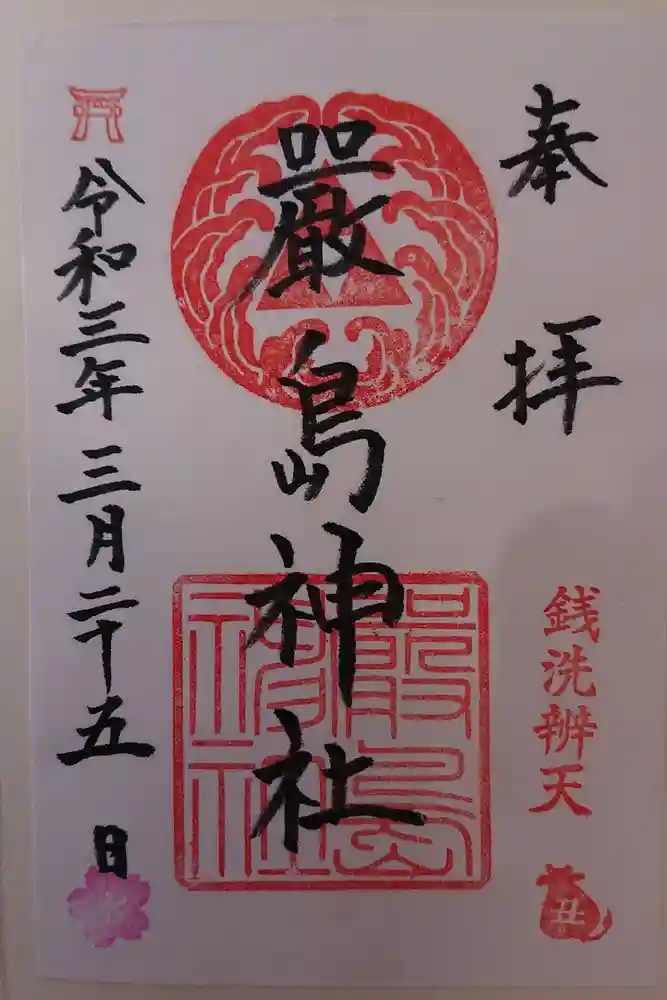 奉拝
嚴島神社
嚴島神社
銭洗辨天
丑
令和三年三月二十五日